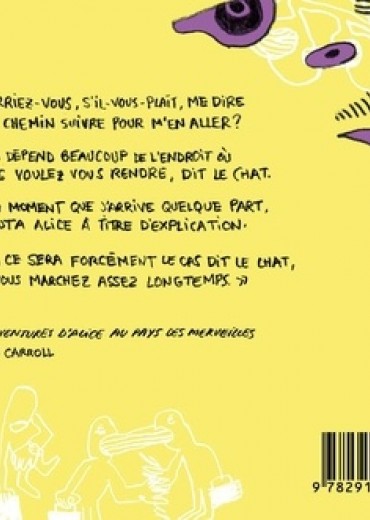 RRIEZ-VOUS, S'IL-VOUS-PLAIT, ME DIRE
CHEMIN SUIVRE POUR M'EN ALLER?
DÉPEND BEAUCOUP DE L'ENDROIT OÙ
S VOULEZ VOUS RENDRE, DIT LE CHAT.
MOMENT QUE J'ARRIVE QUELQUE PART,
UTA ALICE À TITRE D'EXPLICATION.
CE SERA FORCÉMENT LE CAS DIT LE CHAT,
VOUS MARCHEZ ASSEZ LONGTEMPS. »
VENTURES D'ALICE AU PAYS DES MERVEILLES
CARROLL
9 78291